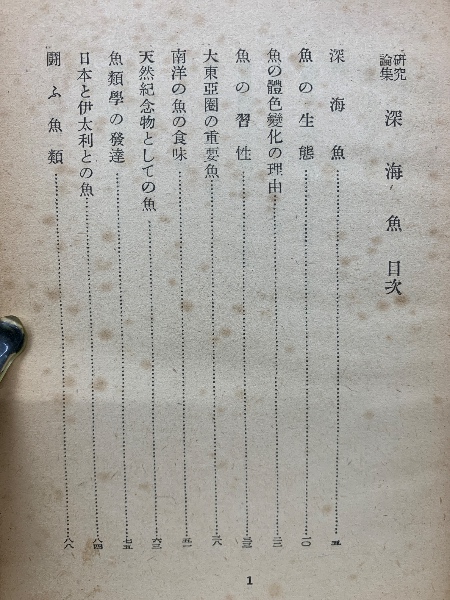 研究論集 深海魚 目次
深海魚 五
魚の生態 一〇
魚の體色變化の理由
魚の習性
大東亞圈の重要魚 三八
南洋の魚の食味 五一
天然紀念物としての魚 六三
魚類學の發達 七五
日本と伊太利との魚 八四
鬪ふ魚類 八八
1